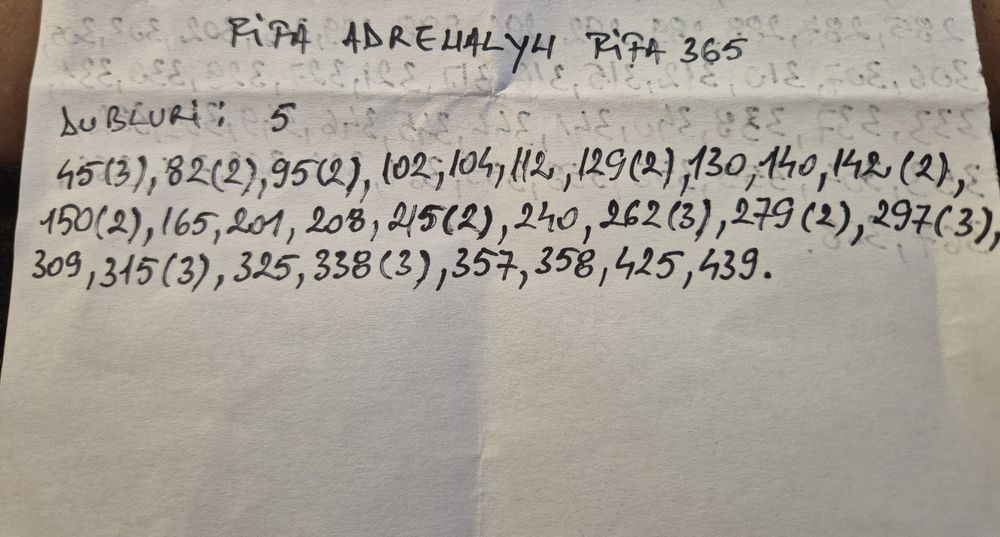 FiFA ADREHALYH FiFA 365
DUBLURi: 5
45(3), 82(2), 95(2), 102, 104, 112, 129(2), 130, 140, 142 (2),
150(2), 165, 201, 208, 215(2), 240, 262(3), 279(2), 297(3),
309, 315(3), 325, 338(3), 357, 358, 425, 439.